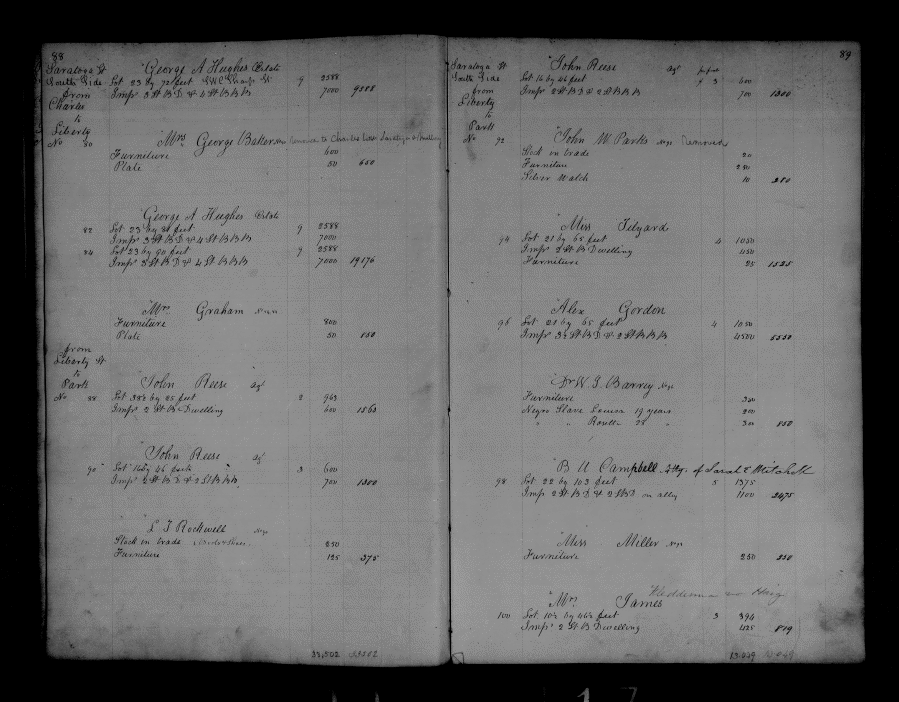 88
Saratoga St
South Side
from
Charles
to
Liberty
George A Hughes Estate
Lot 23 by 72 feet 9 2588
Imps 3 St B D & 4 St B B B 7000 9588
No 80
Mrs George Baker
Furniture 600
Plate 50 650
George A Hughes Estate
82 Lot 23 by feet 9 2588
Imps 3 St B D & 4 St B B B 7000
84 Lot 23 by 90 feet 9 2588
Imps 3 St B D & 4 St B B B 7000 19176
Mrs Graham
Furniture 800
Plate 50 850
from
Liberty St
to
Park
John Reese Agt
No 88 Lot by 25 feet 2 963
Imps 2 St B Dwelling 600 1563
John Reese Agt
90 Lot 16 by 46 feet 3 600
Imps 2 St B D & 2 St B B B 700 1300
L J Rockwell
Stock in trade 250
Furniture 125 375
33,502 33502
89
Saratoga St
South Side
from
Liberty
to
Park
John Reese Agt
Lot 16 by 46 feet 3 600
Imps 2 St B D & 2 St B B B 700 1300
No 92
John W Parks Removed
Stock in trade 20
Furniture 250
Silver Watch 10 280
Miss Tilyard
94 Lot 21 by 65 feet 4 1050
Imps 2 St B Dwelling 450
Furniture 25 1525
Alex Gordon
96 Lot 21 by 65 feet 4 1050
Imps 3½ St B D & 2 St B B B 4500 5550
Dr W J Barrey
Furniture 300
Negro Slave Louisa 19 years 200
" " Rosetta 25 " 300 850
B U Campbell of Sarah E Mitchell
98 Lot 22 by 103 feet 5 1375
Imps 2 St B D & 2 St B D on alley 1100 2475
Miss Miller
Furniture 250 250
Mrs James
100 Lot by feet 3 394
Imps 2 St B Dwelling 425 819
13.049 13.049